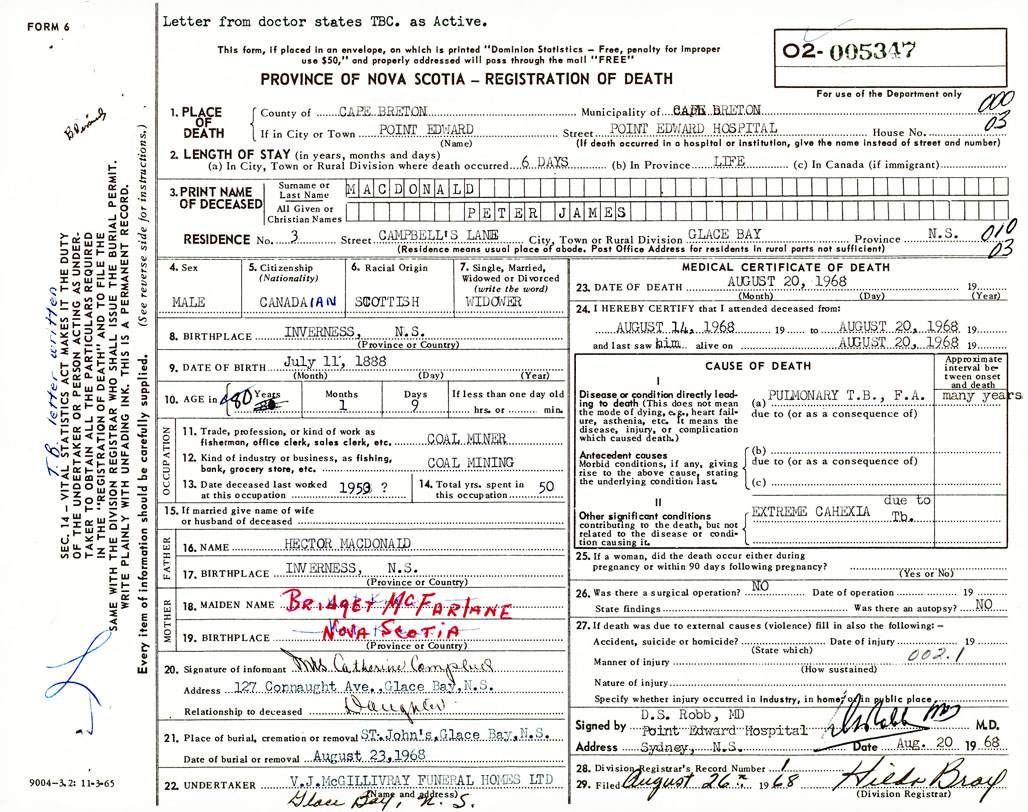 FORM 6
Letter from doctor states TBC. as Active.
This form, if placed in an envelope, on which is printed "Dominion Statistics – Free, penalty for improper
use $50," and properly addressed will pass through the mail "FREE"
PROVINCE OF NOVA SCOTIA – REGISTRATION OF DEATH
02-005347
For use of the Department only
000
03
1. PLACE OF DEATH
County of CAPE BRETON Municipality of CAPE BRETON
If in City or Town POINT EDWARD Street POINT EDWARD HOSPITAL House No.
(Name) (If death occurred in a hospital or institution, give the name instead of street and number)
2. LENGTH OF STAY (in years, months and days)
(a) In City, Town or Rural Division where death occurred 6 DAYS (b) In Province LIFE (c) In Canada (if immigrant)
3. PRINT NAME OF DECEASED
Surname or Last Name MACDONALD
All Given or Christian Names PETER JAMES
RESIDENCE No. 3 Street CAMPBELL'S LANE City, Town or Rural Division GLACE BAY Province N.S.
(Residence means usual place of abode. Post Office Address for residents in rural parts not sufficient)
010
03
4. Sex
MALE
5. Citizenship
(Nationality)
CANADAIAN
6. Racial Origin
SCOTTISH
7. Single, Married,
Widowed or Divorced
(write the word)
WIDOWER
8. BIRTHPLACE INVERNESS, N.S.
(Province or Country)
9. DATE OF BIRTH July 11, 1888
(Month) (Day) (Year)
10. AGE in 80 Years Months 1 Days 9 If less than one day old
hrs. or min.
OCCUPATION
11. Trade, profession, or kind of work as
fisherman, office clerk, sales clerk, etc. COAL MINER
12. Kind of industry or business, as fishing,
bank, grocery store, etc. COAL MINING
13. Date deceased last worked
at this occupation 1953 ?
14. Total yrs. spent in
this occupation 50
15. If married give name of wife
or husband of deceased
FATHER
16. NAME HECTOR MACDONALD
17. BIRTHPLACE INVERNESS, N.S.
(Province or Country)
MOTHER
18. MAIDEN NAME BRIDGET MCFARLANE
19. BIRTHPLACE NOVA SCOTIA
(Province or Country)
20. Signature of informant Mrs. Catherine Campbell
Address 127 Connaught Ave., Glace Bay, N.S.
Relationship to deceased Daughter
21. Place of burial, cremation or removal ST. John's, Glace Bay, N.S.
Date of burial or removal August 23, 1968
22. UNDERTAKER V.J. McGILLIVRAY FUNERAL HOMES LTD
(Name and address)
Glace Bay, N.S.
MEDICAL CERTIFICATE OF DEATH
23. DATE OF DEATH AUGUST 20, 1968 19
(Month) (Day) (Year)
24. I HEREBY CERTIFY that I attended deceased from:
AUGUST 14, 1968 19 to AUGUST 20, 1968 19
and last saw him alive on AUGUST 20, 1968 19
CAUSE OF DEATH
Approximate interval between onset and death
I
Disease or condition directly leading to death (This does not mean the mode of dying, e.g., heart failure, asthenia, etc. It means the disease, injury, or complication which caused death.)
(a) PULMONARY T.B., F.A. many years
due to (or as a consequence of)
Antecedent causes
Morbid conditions, if any, giving rise to the above cause, stating the underlying condition last.
(b)
due to (or as a consequence of)
(c)
II
Other significant conditions contributing to the death, but not related to the disease or condition causing it.
EXTREME CAHEXIA due to Tb.
25. If a woman, did the death occur either during
pregnancy or within 90 days following pregnancy?
(Yes or No)
26. Was there a surgical operation? NO Date of operation 19
State findings Was there an autopsy? NO
27. If death was due to external causes (violence) fill in also the following: –
Accident, suicide or homicide? Date of injury 19
(State which)
002.1
Manner of injury
(How sustained)
Nature of injury
Specify whether injury occurred in Industry, in home, or in public place
Signed by D.S. Robb, MD
Point Edward Hospital
DS Robb MD M.D.
Address Sydney, N.S. Date Aug. 20 1968
28. Division Registrar's Record Number
29. Filed August 26th 1968 Hilda Bray
(Division Registrar)
T.B. letter written
SEC. 14 – VITAL STATISTICS ACT MAKES IT THE DUTY
OF THE UNDERTAKER OR PERSON ACTING AS UNDER-
TAKER TO OBTAIN ALL THE PARTICULARS REQUIRED
IN THE "REGISTRATION OF DEATH" AND TO FILE THE
SAME WITH THE DIVISION REGISTRAR WHO SHALL ISSUE THE BURIAL PERMIT.
WRITE PLAINLY WITH UNFADING INK. THIS IS A PERMANENT RECORD.
Every item of information should be carefully supplied. (See reverse side for instructions.)
9004-3.2: 11-3-65